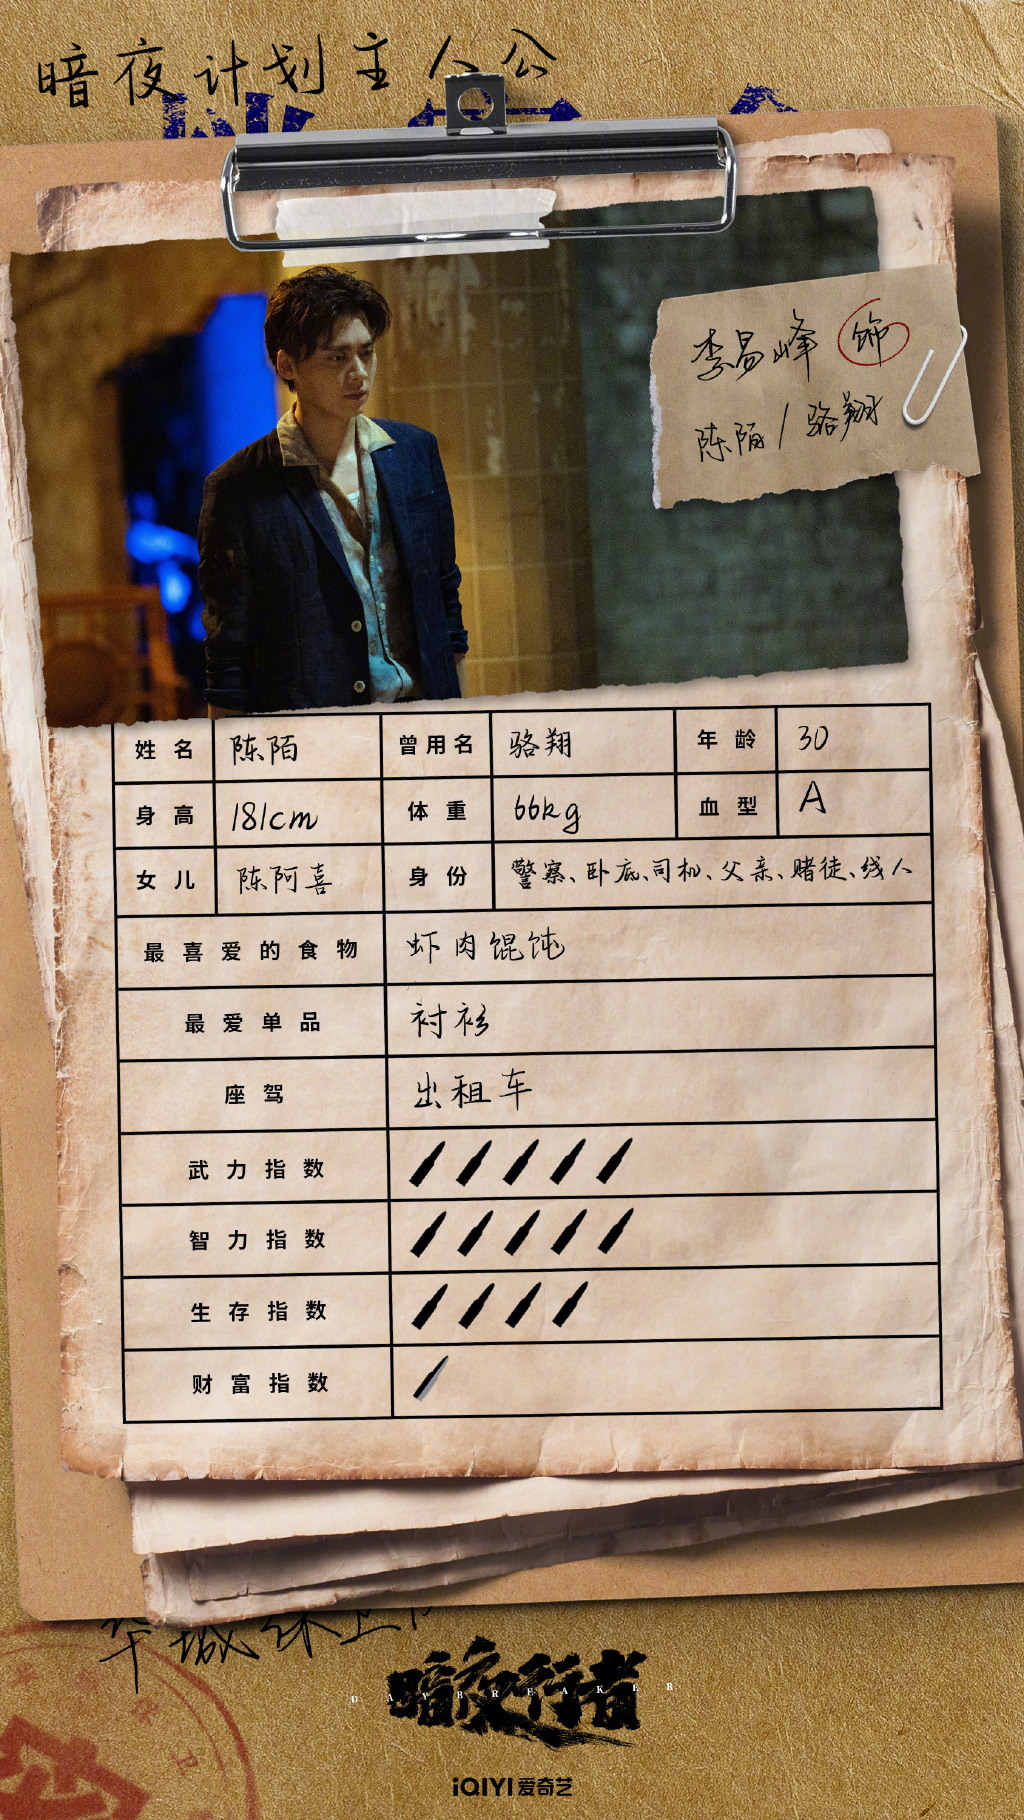 暗夜计划主人公
李易峰 饰
陈陌/骆翔
姓名 陈陌 曾用名 骆翔 年龄 30
身高 181cm 体重 66kg 血型 A
女儿 陈阿喜 身份 警察、卧底、司机、父亲、赌徒、线人
最喜爱的食物 虾肉馄饨
最爱单品 衬衫
座驾 出租车
武力指数
智力指数
生存指数
财富指数
暗夜行者
DAYBREAKER
iQIYI 爱奇艺